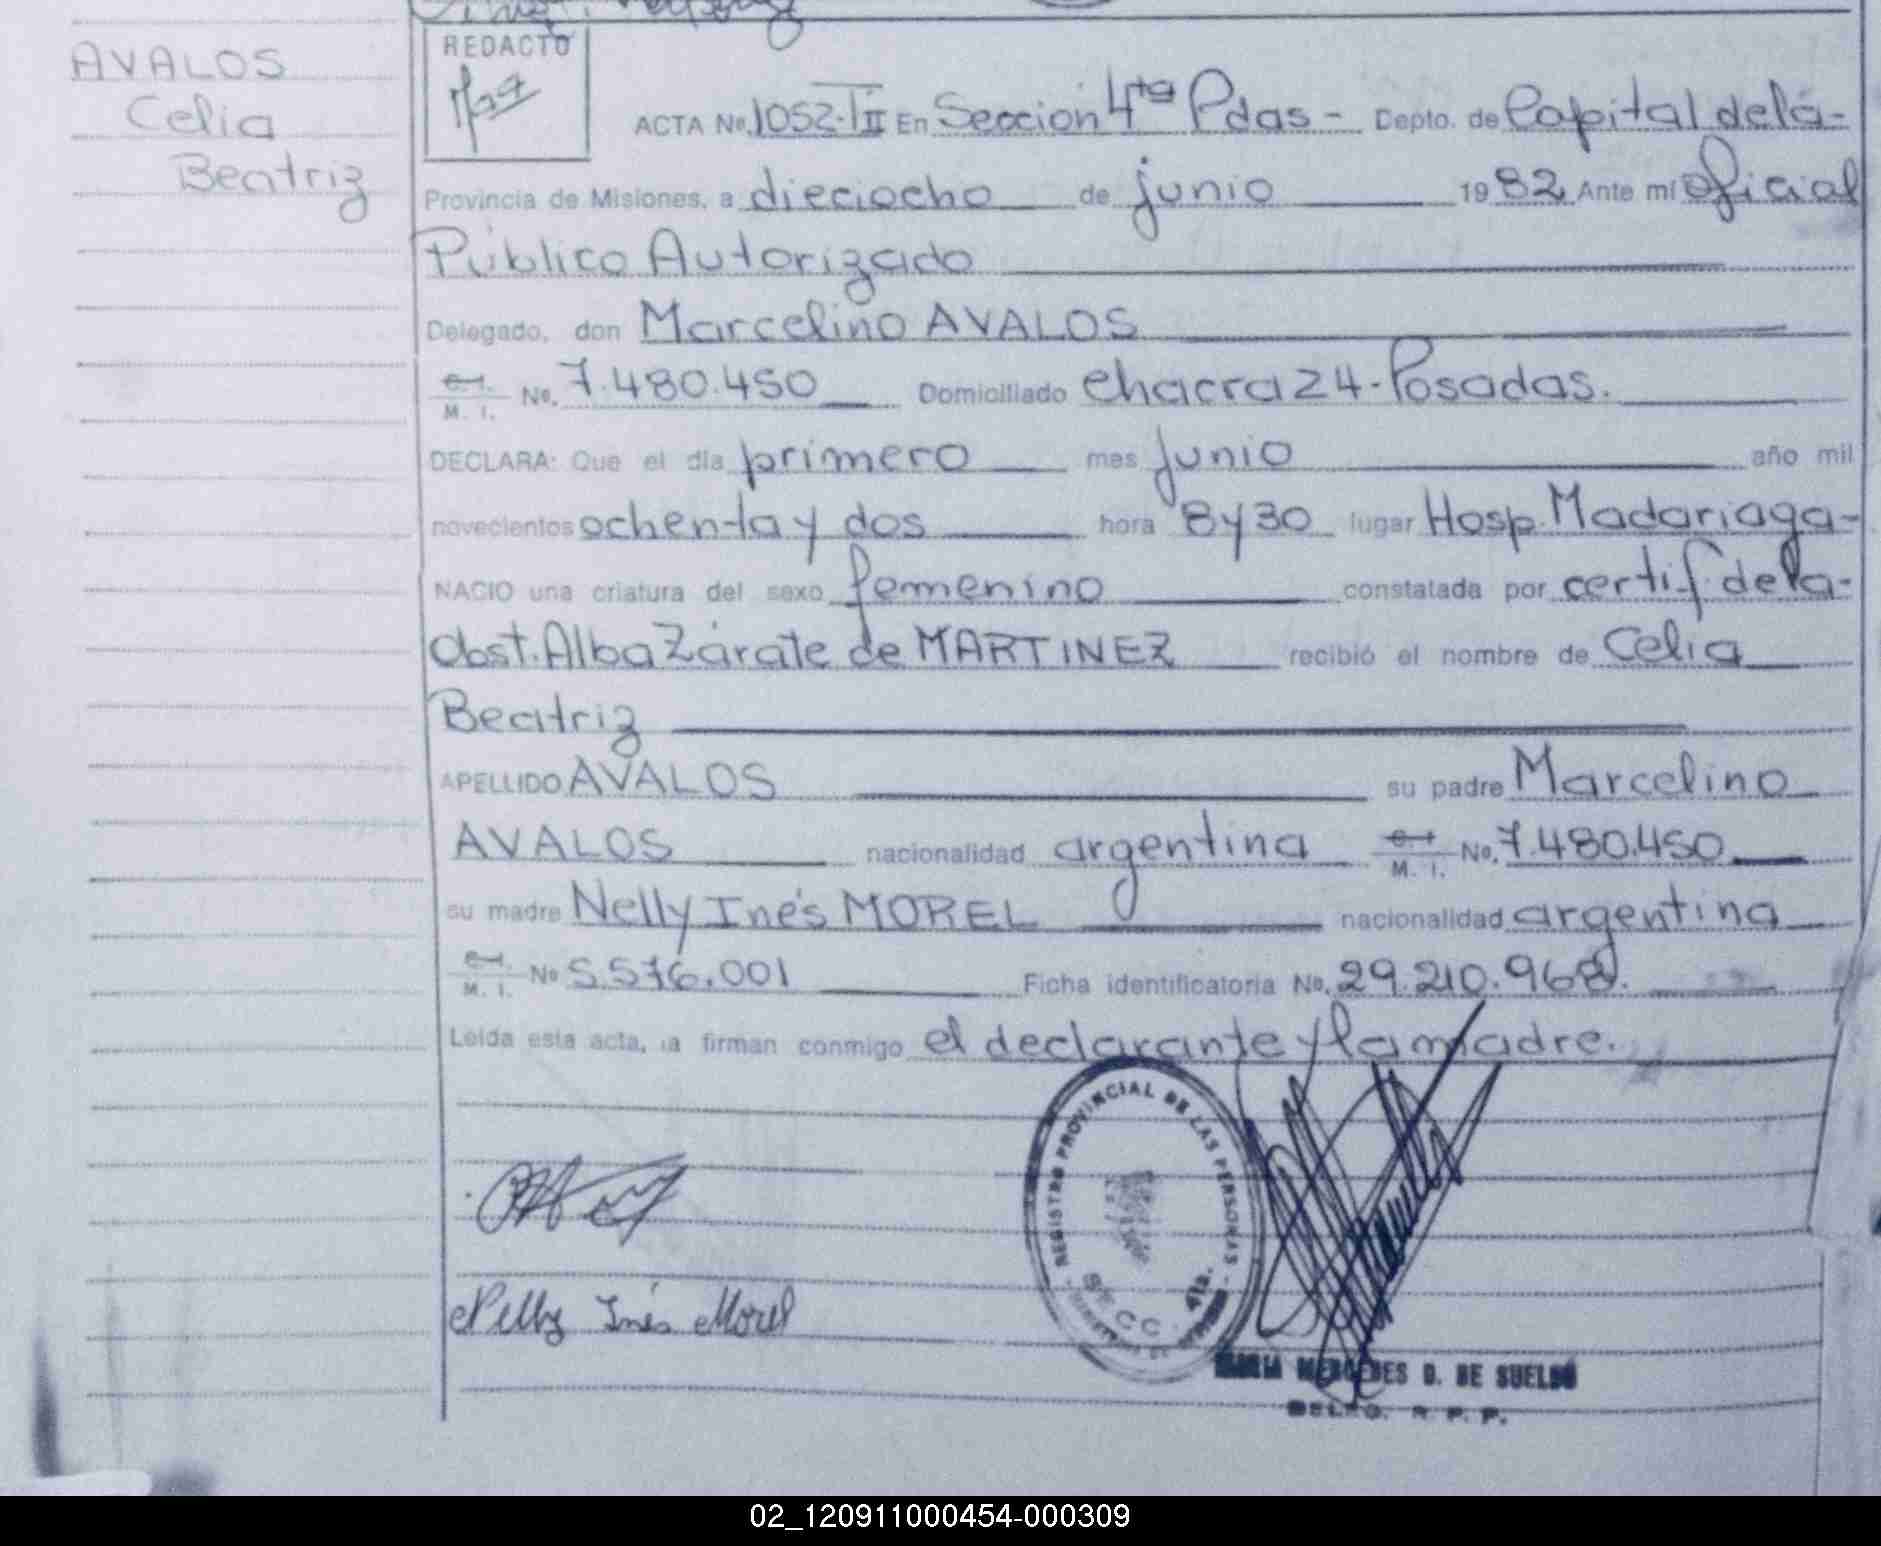 AVALOS
Celia
Beatriz
REDACTO
ACTA No. 1052-TII En Sección 4ta Pdas - Depto. de Capital de la-
Provincia de Misiones, a dieciocho de junio 1982 Ante mí Oficial
Público Autorizado
Delegado, don Marcelino AVALOS
C.I. M. I. No. 7.480.450 Domiciliado Chacra 24-Posadas.
DECLARA: Que el día primero mes junio año mil
novecientos ochenta y dos hora 8y30 lugar Hosp. Madariaga-
NACIO una criatura del sexo femenino constatada por certif. de la-
Obst. Alba Zárate de MARTINEZ recibió el nombre de Celia
Beatriz
APELLIDO AVALOS su padre Marcelino
AVALOS nacionalidad argentina C.I. M. I. No. 7.480.450
su madre Nelly Inés MOREL nacionalidad argentina
C.I. M. I. No 5.576.001 Ficha identificatoria No. 29.210.968.
Leida esta acta, la firman conmigo el declarante y la madre.
REGISTRO PROVINCIAL DE LAS PERSONAS
SECC. 4ta.
Nelly Inés Morel
MARIA MERCEDES D. DE SUELDO
DELEG. R. P. P.
02_120911000454-000309